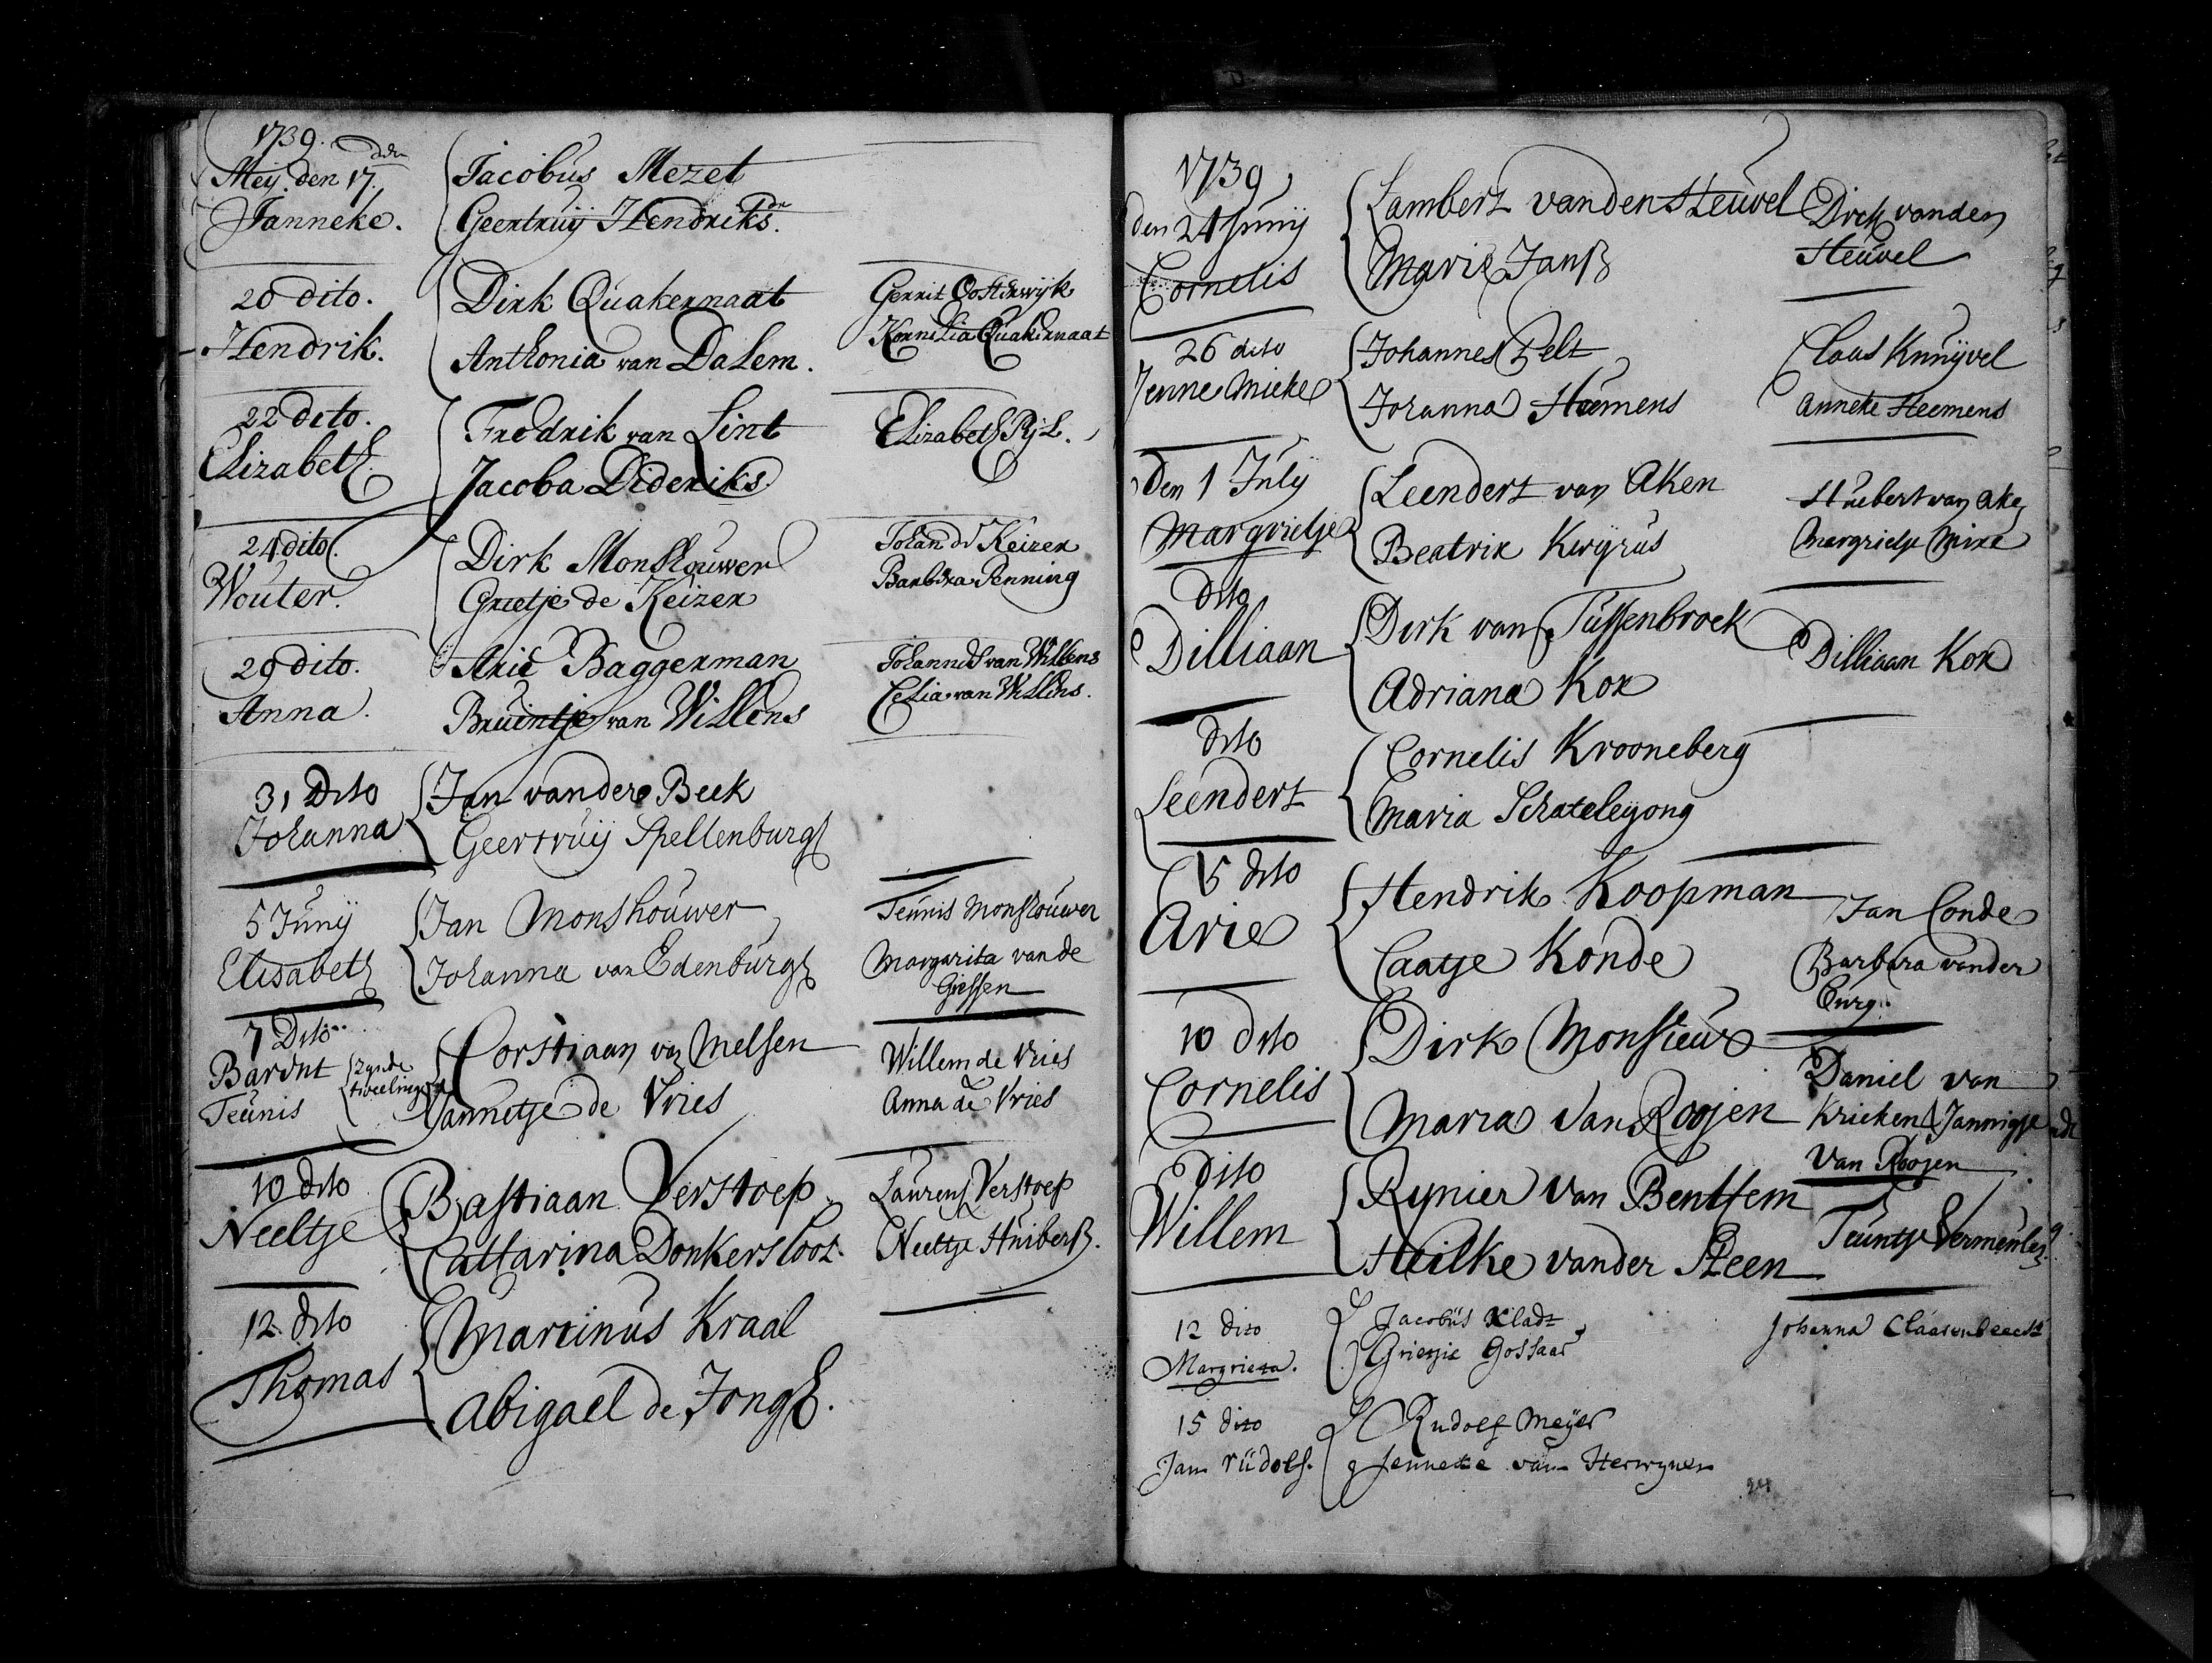 1739.
Mey. den 17. dito
Janneke.
Jacobus Mezet
Geertruij Hendriks.
20 dito.
Hendrik.
Dirk Quakernaat
Anthonia van Dalem.
Gerrit Oosterwijk
Kornelia Quakernaat
22 dito.
Elizabeth.
Fredrik van Lint
Jacoba Dideriks.
Elizabeth Pijl.
24 dito.
Wouter.
Dirk Monshouwer
Grietje de Keizer
Johan de Keizer
Barbera Penning
29 dito.
Anna.
Arie Baggerman
Bruintje van Willens
Johannes van Willens
Celia van Willens.
31 Dito
Johanna
Jan vander Beek
Geertruij Spellenburgh
5 Junij
Elisabeth
Jan Monshouwer
Johanna van Edenburgh
Teunis Monshouwer
Margarita van de
Giessen
7 Dito
Barent
Teunis
zynde
tweelingen
Corstiaan van Melsen
Jannetje de Vries
Willem de Vries
Anna de Vries
10 dito
Neeltje
Bastiaan Verstoep
Catharina Donkersloot.
Laurens Verstoep
Neeltje Huiberß.
12 dito
Thomas
Martinus Kraal
Abigael de Jongh.
1739
den 24 Junij
Cornelis
Lambert vanden Heuvel
Maria Janß
Dirk vanden
Heuvel
26 dito
Jenne Mieke
Johannes Pelt
Johanna Heemens
Claas Knuyvel
Anneke Heemens
Den 1 July
Margrietje
Leendert van Aken
Beatrix
Huebert van Aken
Margrietje
dito
Dilliaan
Dirk van Tussenbroek
Adriana Kok
Dilliaan Kok
dito
Leendert
Cornelis Krooneberg
Maria
5 dito
Arie
Hendrik Koopman
Caatje Konde
Jan Conde
Barbara vander
Burg.
10 dito
Cornelis
Dirk Monsieur
Maria van Roojen
Daniel van
Krieken Jannigje
van Roojen
Dito
Willem
Rynier van Benthem
Heilke vander Steen
Teuntje Vermeulen
12 dito
Margrieta.
Jacobus Kladt
Grietjie Gossaar
Johanna Claasenbeeck
15 dito
Jan rudolf.
Rudolf Meyer
Jenneke van Herwynen
24